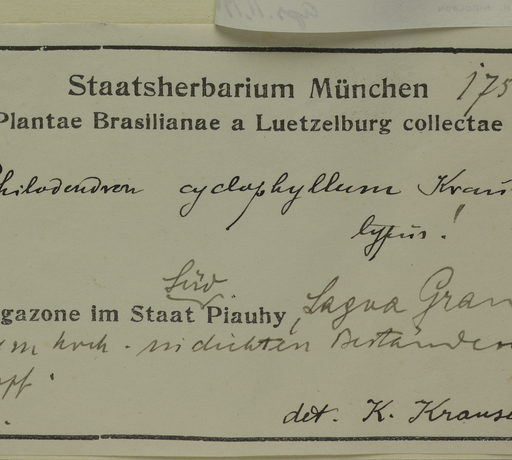 Staatsherbarium München 175
Plantae Brasilianae a Luetzelburg collectae
Philodendron cyclophyllum Krau
typus!
Süd
gazone im Staat Piauhy, Lagoa Gran
m hoch. in dichten Beständen
det. K. Krause